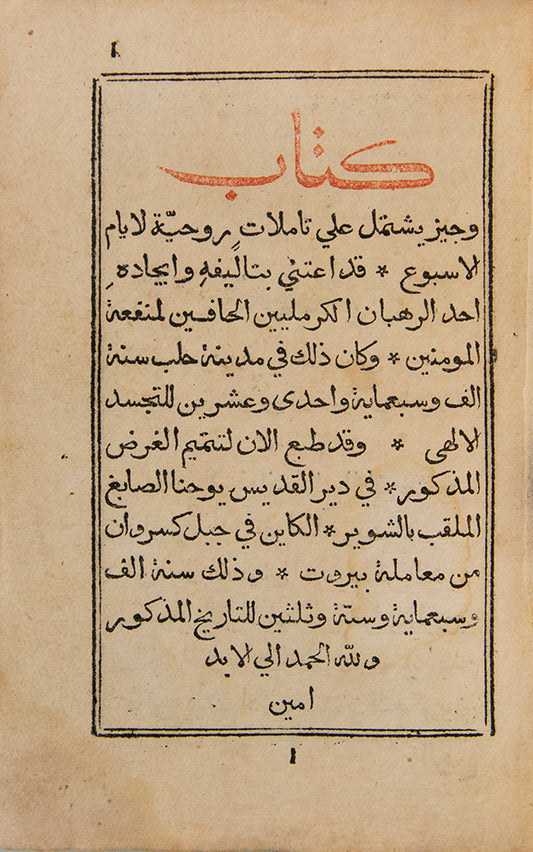 ١
كتاب
وجيز يشتمل علي تاملات روحيّة لايام
الاسبوع * قد اعتني بتاليفهِ وايجادهِ
احد الرهبان الكرمليين الحافيين لمنفعة
المومنين * وكان ذلك في مدينة حلب سنة
الف وسبعماية واحدى وعشرين للتجسد
الالهى * وقد طبع الان لتتميم الغرض
المذكور * في دير القديس يوحنا الصايغ
الملقب بالشوير * الكاين في جبل كسروان
من معاملة بيروت * وذلك سنة الف
وسبعماية وستّة وثلثين للتاريخ المذكور
ولله الحمد الي الابد
امين
١